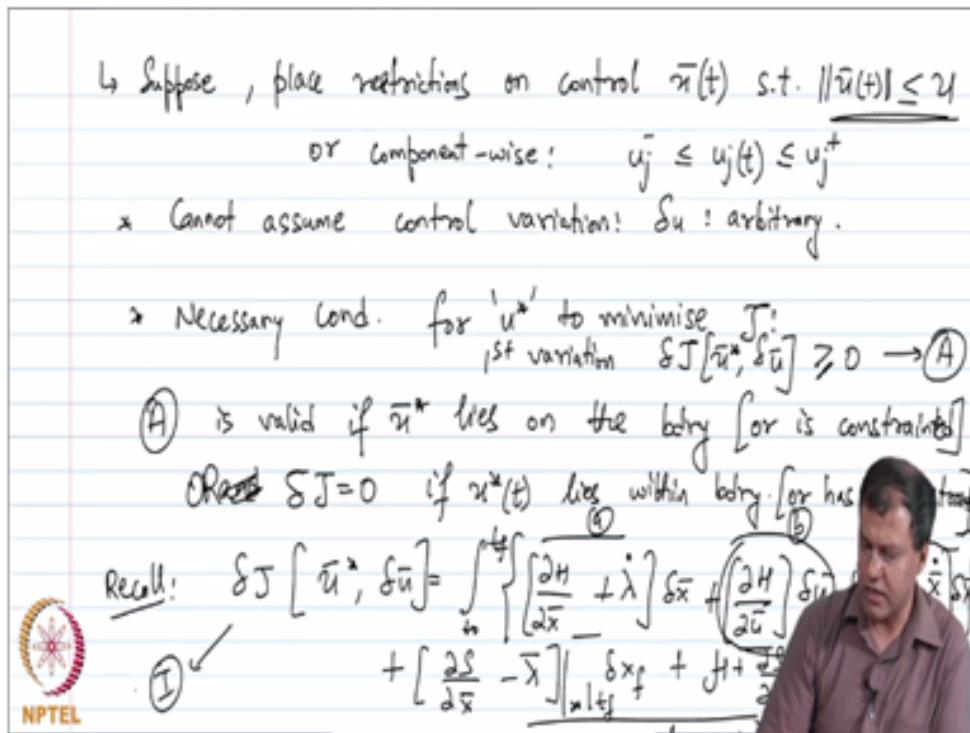 ↳ Suppose, place restrictions on control ū(t) s.t. ||ū(t)|| ≤ U
or component-wise: uj⁻ ≤ uj(t) ≤ uj⁺
* Cannot assume control variation: δu : arbitrary.
* Necessary Cond. for 'u*' to minimise J:
1st variation δJ[ū*, δū] ≥ 0 → Ⓐ
Ⓐ is valid if ū* lies on the bdry [or is constrained]
OR δJ=0 if u*(t) lies within bdry. [or has
ⓐ ⓑ
Recall: δJ [ū*, δū] = ∫t₀^tf { [∂H/∂x̄ + λ̇] δx̄ + [∂H/∂ū] δū
Ⓘ + [∂S/∂x̄ - λ̄]|*|tf δxf + H +
NPTEL